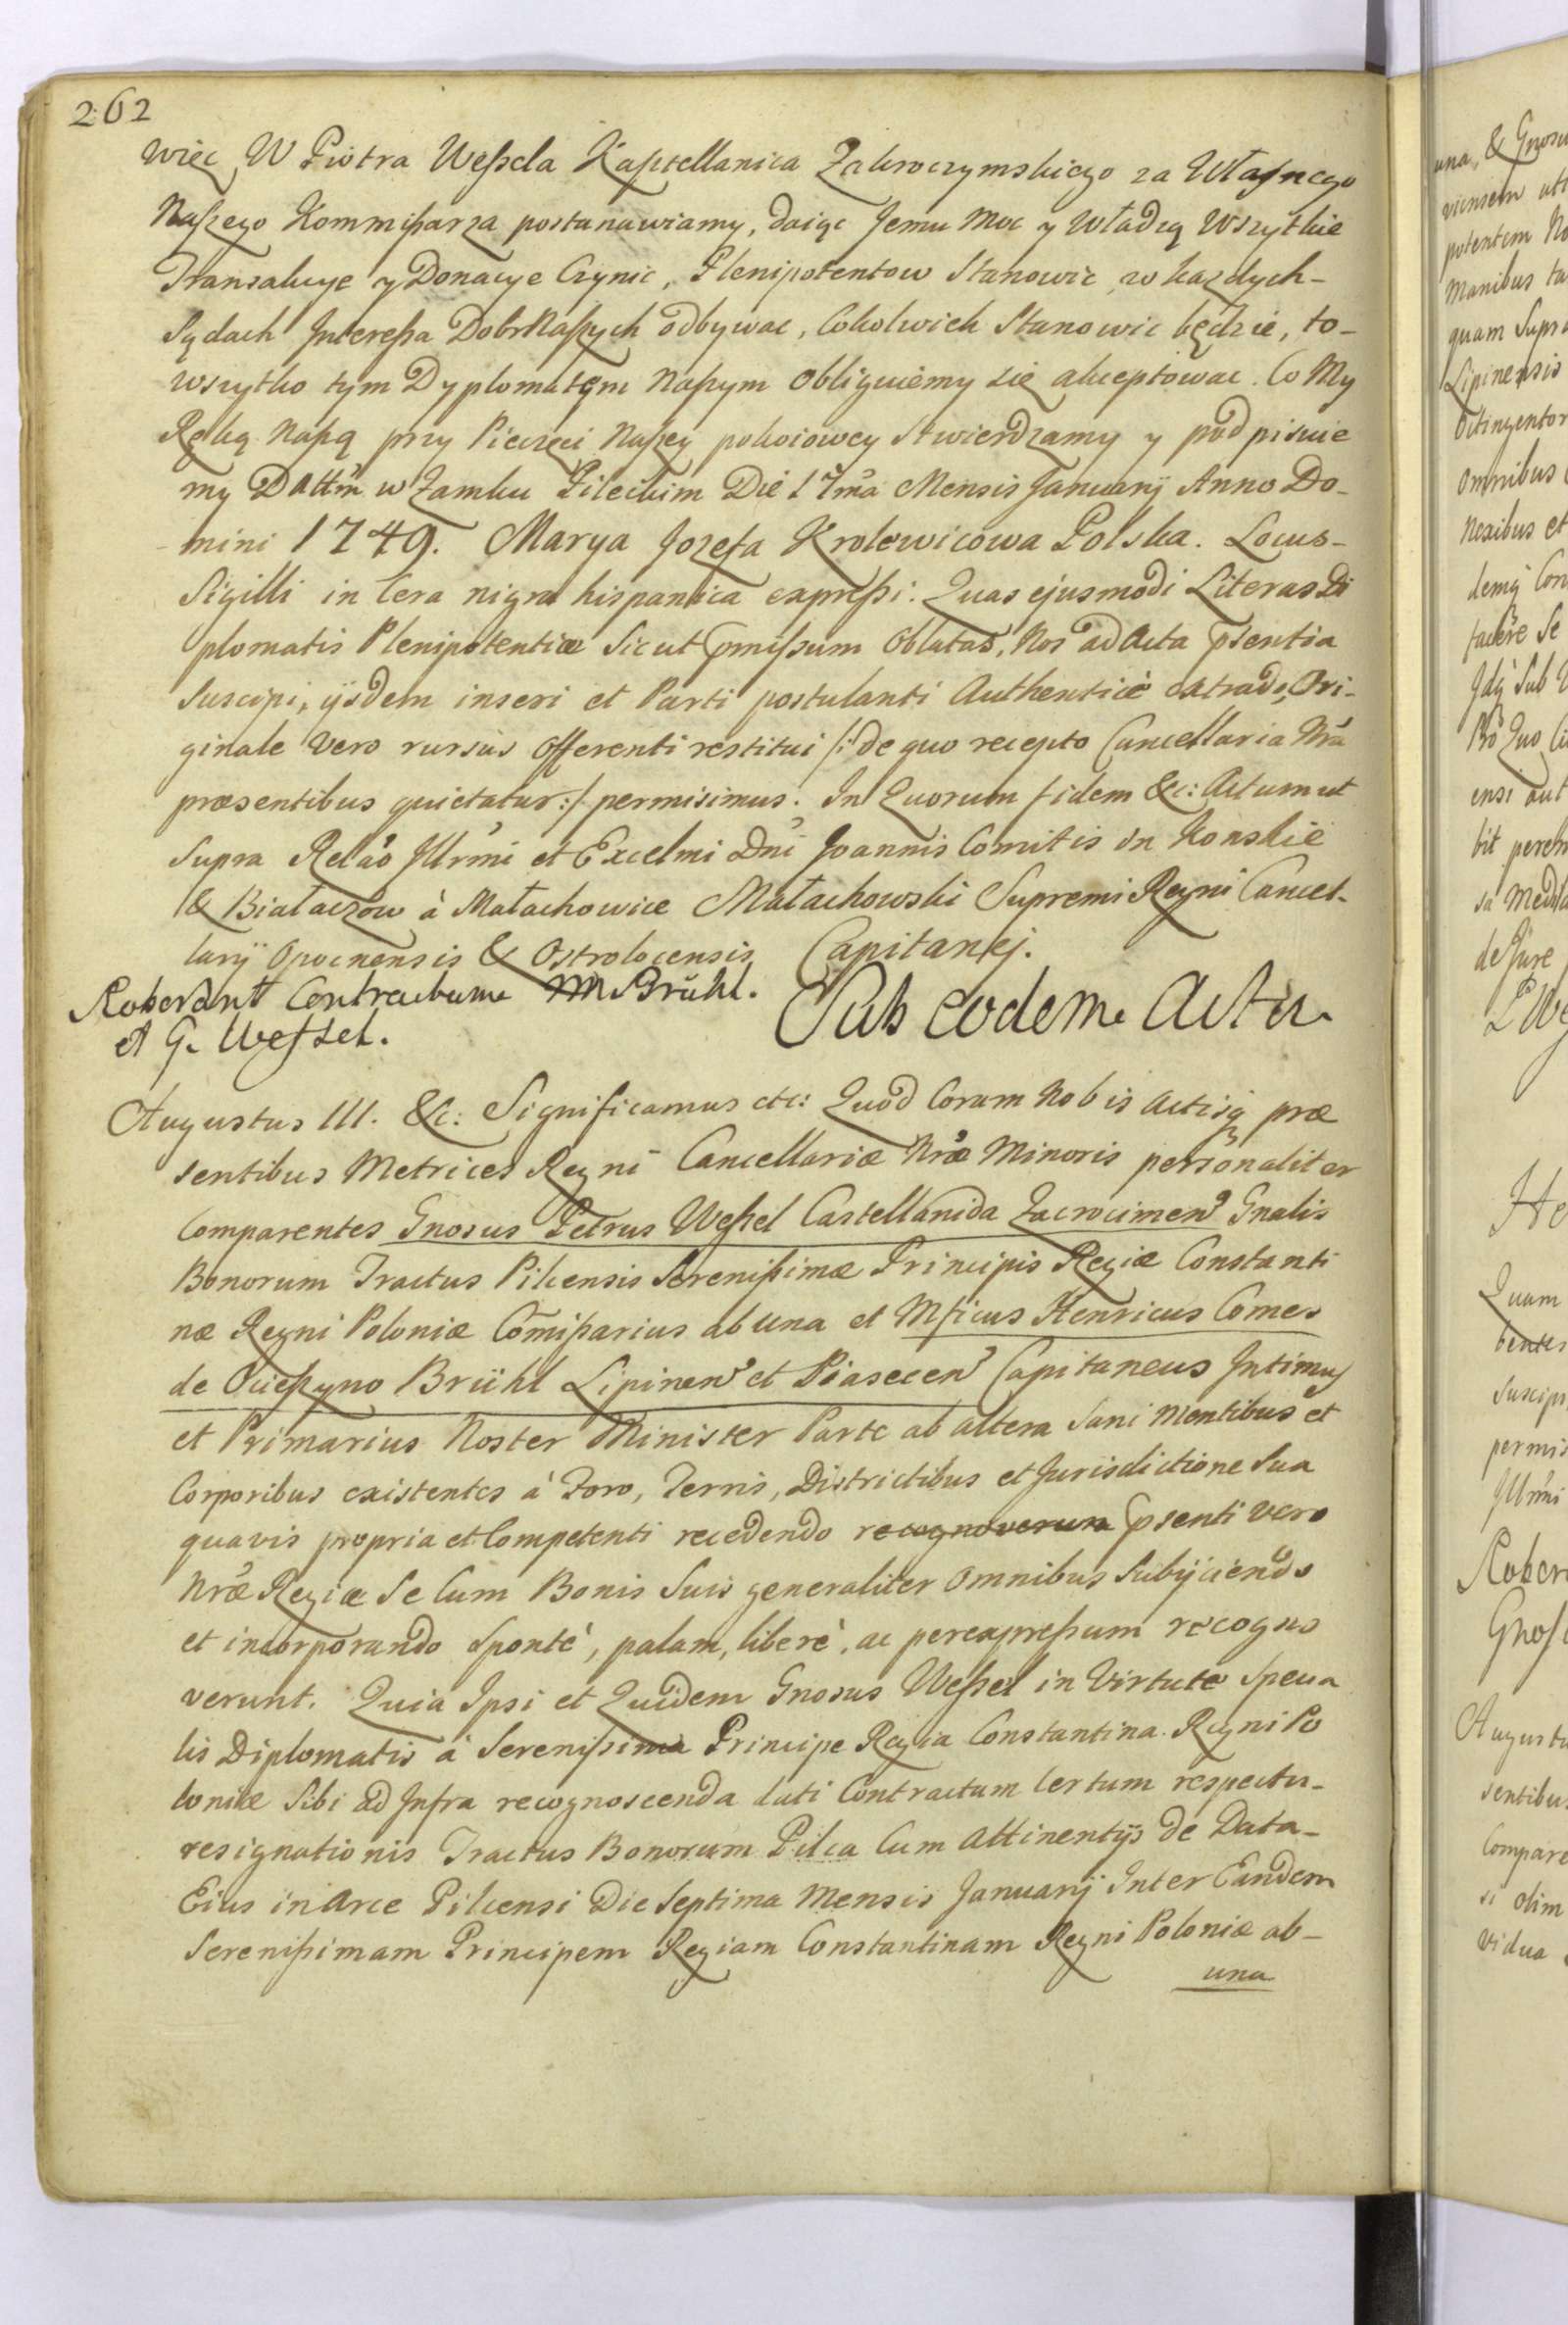 262
więc W Piotra Weßela Kasztellanica Zakroczymskiego za Własnego
Naszego Kommißarza postanawiamy, daiąc Jemu Moc y Władzą Wszytkie
Transakcye y Donacye Czynic, Plenipotentow Stanowic, w każdych-
Sądach Intereßa Dobr Naszych odbywac, Cokolwiek Stanowic będzie, to-
wszytko tym Dyplomatem Naszym obliguiemy się akceptowac. Co My
Ręką Naszą przy Pieczęci Naszey pokoiowey Stwierdzamy y podpisuie
my Dattm̄ w Zamku Pileckim Die 17ma Mensis Januarij Anno Do-
mini 1749. Marya Jozefa Krolewicowa Polska. Locus-
Sigilli in Cera nigra hispanica expreßi: Quas ejusmodi Literas Di
plomatis Plenipotentiæ Sicut pmißum Oblatas, Nos ad Acta psentia
Suscipi, ijsdem inseri et Parti postulanti Authenticè extradi, Ori-
ginale Vero rursus Offerenti restitui /: de quo recepto Cancellaria Nrã
præsentibus quietatur :/ permisimus. In Quorum fidem &c: Actum ut
Supra Relão Jllrmi et Excelmi Dni Joannis Comitis in Konskie
& Białaczow à Małachowice Małachowski Supremi Regni Cancel-
larij Opocnensis & Ostrołocensis Capitanej.
Roborant Contractum M Brühl.
et G. Weſsel.
Sub eodem Actu
Augustus III. &c: Significamus etc: Quod Coram Nobis Actisq præ
sentibus Metrices Regni Cancellariæ Nræ Minoris personaliter
Comparentes Gnosus Petrus Weßel Castellanida Zacrocimen Gnalis
Bonorum Tractus Pilcensis Serenißimæ Principis Regiæ Constanti
næ Regni Poloniæ Com̄ißarius ab una et Mficus Henricus Comes
de Ocieszyno Brühl Lipinen et Piasecen Capitaneus Intimus
et Primarius Noster Minister Parte ab altera Sani Mentibus et
Corporibus existentes à Foro, Terris, Districtibus et Jurisdictione Sua
quavis propria et Competenti recedendo recognoverun psenti vero
Nræ Regiæ Se Cum Bonis Suis generaliter Omnibus Subijciendo
et incorporando Spontè, palam, liberè, ac perexpreßum recogno
verunt. Quia Ipsi et Quidem Gnosus Weßel in Virtute Specia
lis Diplomatis à Serenißima Principe Regia Constantina Regni Po
loniæ Sibi ad Infra recognoscenda dati Contractum Certum respectu-
resignationis Tractus Bonorum Pilca Cum Attinentijs de Data-
Eius in Arce Pilcensi Die Septima Mensis Januarij Inter Eandem
Serenißimam Principem Regiam Constantinam Regni Poloniæ ab-
una